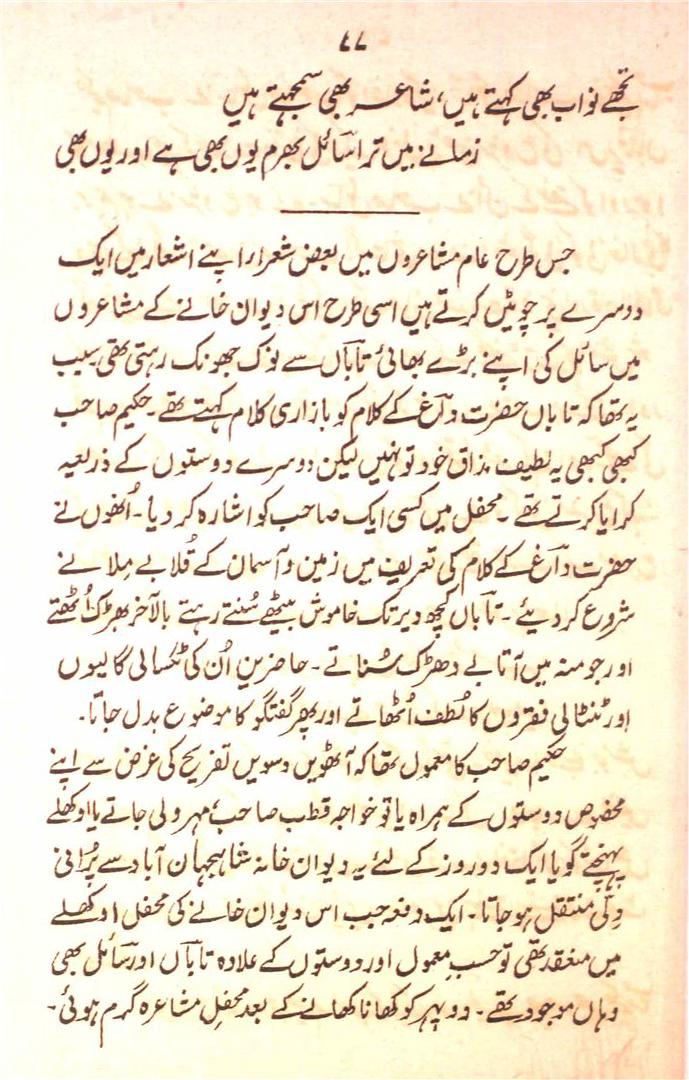 ۴۷
تجھے نواب بھی کہتے ہیں، شاعر بھی سمجھتے ہیں
زمانے میں ترا سائل بھرم یوں بھی ہے اور یوں بھی
جس طرح عام مشاعروں میں بعض شعراء اپنے اشعار میں ایک
دوسرے پر چوٹیں کرتے ہیں اسی طرح اس دیوان خانے کے مشاعروں
میں سائل کی اپنے بڑے بھائی تاباں سے نوک جھونک رہتی تھی سبب
یہ تھا کہ تاباں حضرت داغ کے کلام کو بازاری کلام کہتے تھے۔ حکیم صاحب
کبھی کبھی یہ لطیف مذاق خود تو نہیں لیکن دوسرے دوستوں کے ذریعہ
کرایا کرتے تھے۔ محفل میں کسی ایک صاحب کو اشارہ کر دیا۔ اُنھوں نے
حضرت داغ کے کلام کی تعریف میں زمین و آسمان کے قُلابے مِلانے
شروع کر دیئے۔ تاباں کچھ دیر تک خاموش بیٹھے سُنتے رہتے بالآخر بھڑک اُٹھتے
اور جو منہ میں آتا بے دھڑک سُناتے۔ حاضرین اُن کی ٹکسالی گالیوں
اور ٹنٹالی فقروں کا لُطف اُٹھاتے اور پھر گفتگو کا موضوع بدل جاتا۔
حکیم صاحب کا معمول تھا کہ آٹھویں دسویں تفریح کی غرض سے اپنے
مخصوص دوستوں کے ہمراہ یا تو خواجہ قطب صاحب، مہرولی جاتے یا اوکھلے
پہنچتے گویا ایک دو روز کے لئے یہ دیوان خانہ شاہجہان آباد سے پُرانی
دِلّی منتقل ہو جاتا۔ ایک دفعہ جب اس دیوان خانے کی محفل اوکھلے
میں منعقد تھی تو حسبِ معمول اور دوستوں کے علاوہ تاباں اور سائل بھی
وہاں موجود تھے۔ دوپہر کو کھانا کھانے کے بعد محفلِ مشاعرہ گرم ہوئی۔